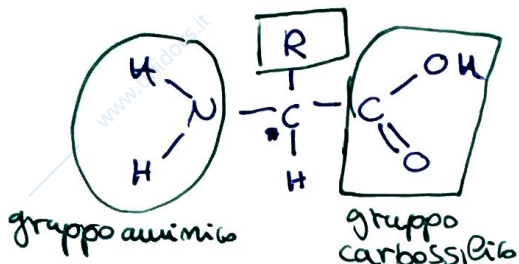 R
H
OH
N
C
C
H
H
O
gruppo amminico
gruppo
carbossilico